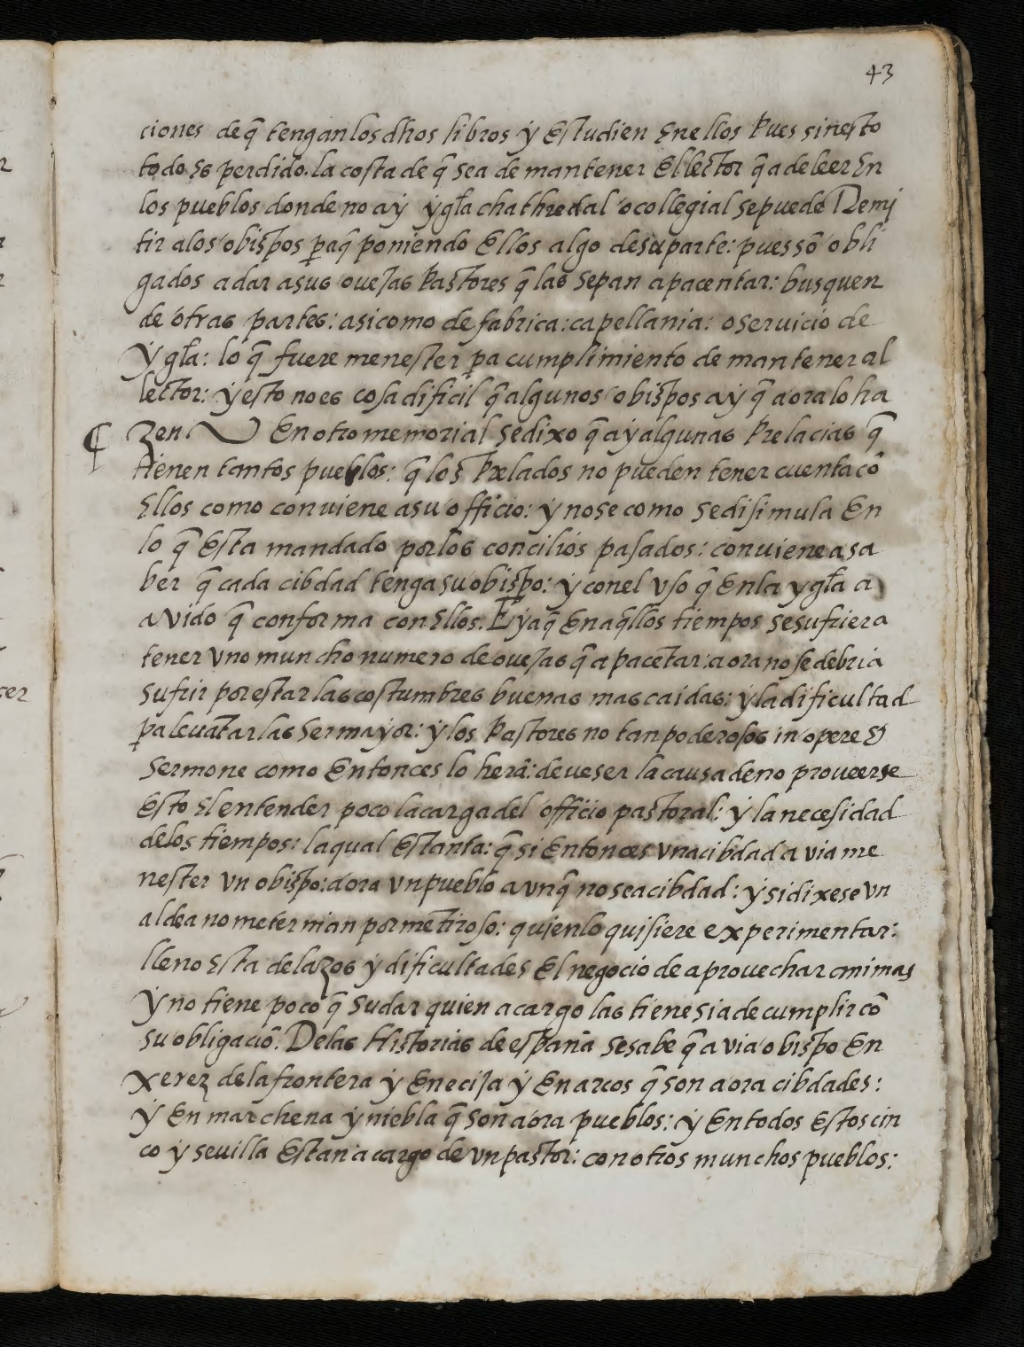 43
ciones de q̃ tengan los dhos libros ẏ estudien en ellos pues sin esto
todo es perdido. la costa de q̃ sea de mantener el lector q̃ a de leer en
los pueblos donde no aẏ ẏgła chathredal o collegial se puede Remj
tir alos obispos paq̃ poniendo ellos algo de su parte: pues sõ obli
gados a dar a sus ouejas Pastores q̃ las sepan apacentar: busquen
de otras partes: asi como de fabrica: capellania: o seruicio de
ẏgła: lo q̃ fuere menester pa cumplimiento de mantener al
lector: ẏ esto no es cosa dificil q̃ algunos obispos aẏ q̃ aora lo ha
¶ zen En otro memorial se dixo q̃ aẏ algunas Prelacias q̃
tienen tantos pueblos: q̃ los Prelados no pueden tener cuenta cõ
ellos como conuiene a su officio: ẏ no se como se disimula en
lo q̃ esta mandado por los concilios pasados: conuiene a sa
ber q̃ cada cibdad tenga su obispo: ẏ con el vso q̃ en la ygła a
avido q̃ conforma con ellos. E ẏa q̃ en aq̃llos tiempos se sufriera
tener vno muncho numero de ouejas q̃ apacẽtar: aora no se debria
sufrir por estar las costumbres buenas mas caidas: ẏ la dificultad
pa leuãtarlas ser maẏor: ẏ los Pastores no tan poderosos in opere &
sermone como entonces lo herã: deue ser la causa de no proueerse
esto el entender poco la carga del officio pastoral: ẏ la necesidad
de los tiempos: la qual es tanta: q̃ si entonces vna cibdad avia me
nester vn obispo: aora vn pueblo avnq̃ no sea cibdad: ẏ si dixese vn
aldea no me ternian por mẽtiroso: quien lo quisiere experimentar:
lleno esta de lazos ẏ dificultades el negocio de aprouechar animas
ẏ no tiene poco q̃ sudar quien a cargo las tiene si a de cumplir cõ
su obligaciõ. De las Historias de españa se sabe q̃ avia obispo en
xerez de la frontera ẏ en ecija ẏ en arcos q̃ son aora cibdades:
ẏ en marchena ẏ niebla q̃ son aora pueblos: ẏ en todos estos cin
co ẏ seuilla estan a cargo de vn pastor: con otros munchos pueblos: